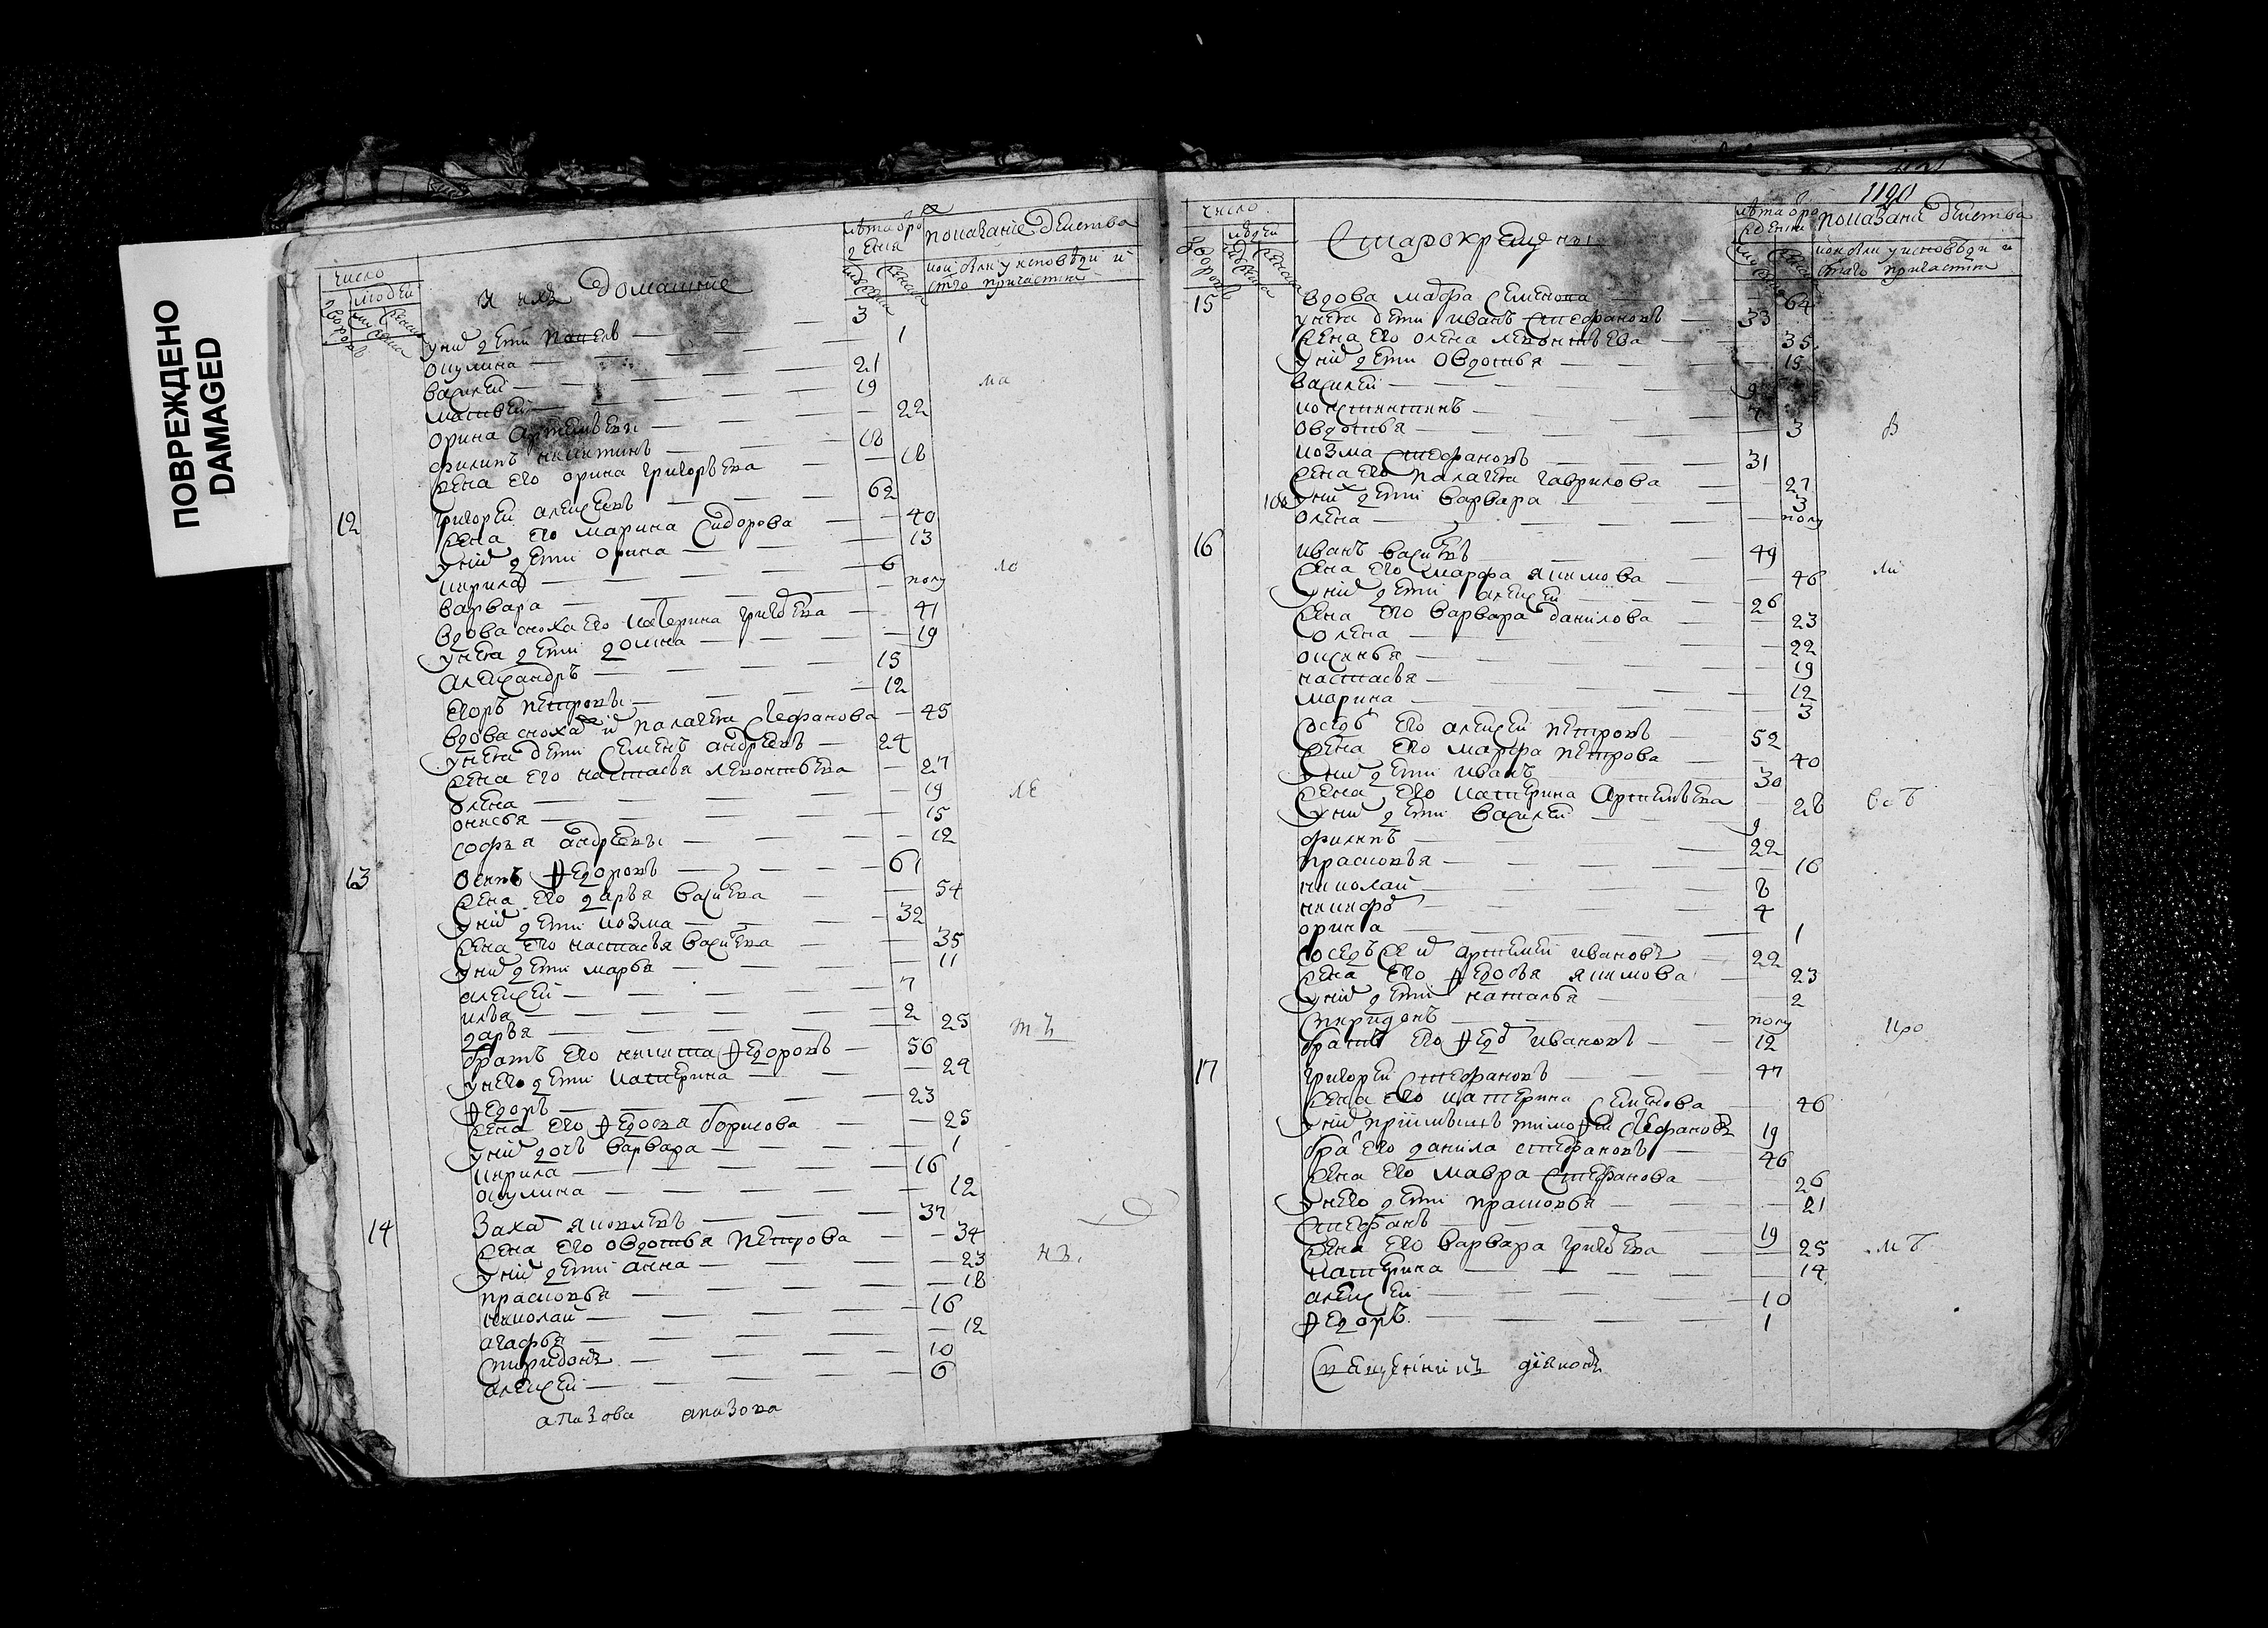 ПОВРЕЖДЕНО
DAMAGED
число
людей
и их домашние
лѣта от рождения
показание действа
кои были у исповеди и
ст҃го причастия
у них дети Павелъ — 3
Окулина — 1
Василей — 21
Матвей — 19
Орина Артемьевы — 22
Филипъ Никитинъ — 18
жена его Орина Григорьева — 18
12 Григорей Алексеевъ — 62
жена его Марина Сидорова — 40
у них дети Орина — 13
Кирила — 6
Варвара — полу
вдова сноха его Катерина Григорева — 41
у нея дети Домна — 19
Александръ — 15
Егоръ Петровы — 12
вдова сноха их Палагея Стефанова — 45
у нея дети Семенъ Андреевъ — 24
жена его Настасья Леонтьева — 27
Олена — 19
Онисья — 15
Софья Андреевы — 12
13 Осипъ Ѳедоровъ — 61
жена его Дарья Васильева — 54
у них дети Козма — 32
жена его Настасья Васильева — 35
у них дети Марья — 11
Алексей — 7
Илья — 2
Дарья — 25
братъ его Никита Ѳедоровъ — 56
у него дети Катерина — 29
Ѳедоръ — 23
жена его Ѳедосья Борисова — 25
у них дочь Варвара — 1
Кирила — 16
Окулина — 12
14 Захар Яковлевъ — 37
жена его Овдотья Петрова — 34
у них дети Анна — 23
Прасковья — 18
Николай — 16
Агафья — 12
Спиридонъ — 10
Алексей — 6
1190
число
людей
Старокрещены
лѣта от рождения
показание действа
кои были у исповеди и
ст҃го причастия
15 вдова Мавра Семенова — 64
у нея дети Иванъ Стефановъ — 33
жена его Олена Леонтьева — 35
у них дети Овдотья — 15
Василей — 9
Константинъ — 7
Овдотья — 3
Козма Стефановъ — 31
жена его Палагея Гаврилова — 27
у них дети Варвара — 3
Олена — полу
16 Иванъ Васильевъ — 49
жена его Марфа Якимова — 46
у них дети Алексей — 26
жена его Варвара Данилова — 23
Олена — 22
Оксинья — 19
Настасья — 12
Марина — 3
сосед его Алексей Петровъ — 52
жена его Марфа Петрова — 40
у них дети Иванъ — 30
жена его Катерина Артемьева — 28
у них дети Василей — 9
Филипъ — 22
Прасковья — 16
Николай — 8
Никифор — 4
Орина — 1
соседъ же их Артемей Ивановъ — 22
жена его Ѳедосья Якимова — 23
у них дети Наталья — 2
Спиридонъ — полу
братъ его Ѳедор Ивановъ — 12
17 Григорей Стефановъ — 47
жена его Катерина Семенова — 46
у них приимышъ Тимоѳей Стефановъ — 19
брат его Данила Стефановъ — 46
жена его Мавра Стефанова — 26
у него дети Прасковья — 21
Стефанъ — 19
жена его Варвара Григорева — 25
Катерина — 14
Алексей — 10
Ѳедоръ — 1
Священникъ диаконъ